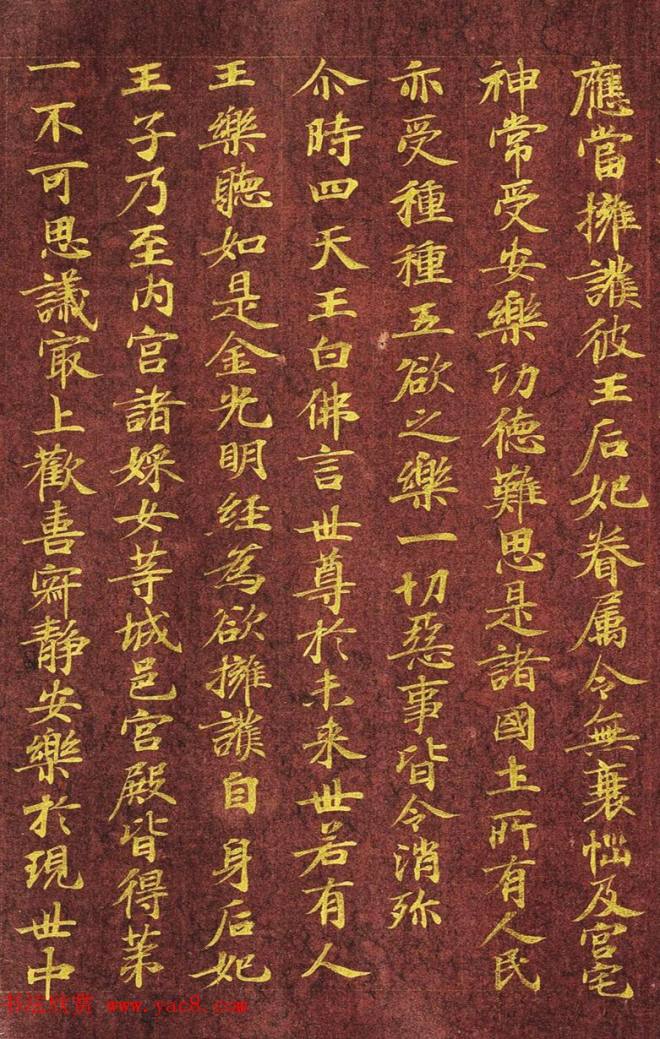 應當擁護彼王后妃眷属令無衰惱及宫宅
神常受安樂功德難思是諸國土所有人民
亦受種種五欲之樂一切惡事皆令消弥
尒時四天王白佛言世尊於未来世若有人
王樂聽如是金光明經為欲擁護自身后妃
王子乃至内宫諸婇女䓁城邑宫殿皆得苐
一不可思議冣上歡喜寂靜安樂於現世中
书法欣赏 www.yac8.com